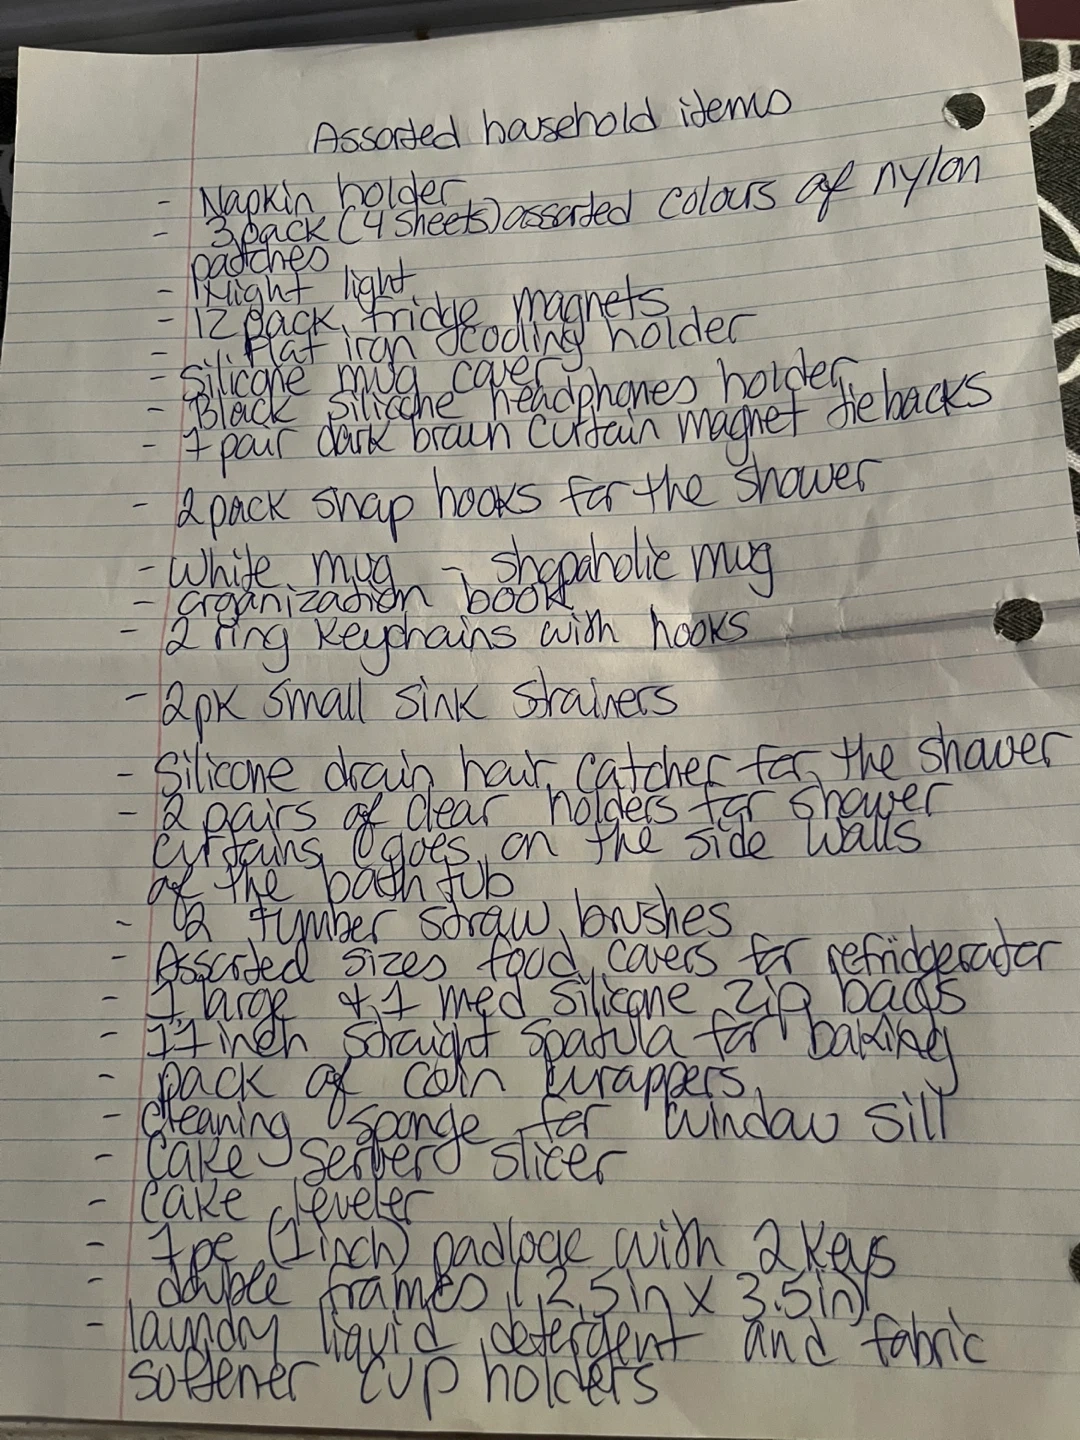 Assorted household items
- Napkin holder
- 3 pack (4 sheets) assorted colours of nylon
patches
- Night light
- 12 pack fridge magnets
- Flat iron cooling holder
- Silicone mug cover
- Black silicone headphones holder
- 1 pair dark brown curtain magnet tie backs
- 2 pack snap hooks for the shower
- White mug - shopaholic mug
- organization book
- 2 ring keychains with hooks
- 2pk small sink strainers
- Silicone drain hair catcher for the shower
- 2 pairs of clear holders for shower
curtains (goes on the side walls
of the bath tub
- 2 tumber straw brushes
- Assorted sizes food covers for refridgerator
- 1 large & 1 med silicone zip bags
- 11 inch straight spatula for baking
- pack of coin wrappers
- cleaning sponge for window sill
- Cake server slicer
- Cake leveler
- 1pc (1 inch) padlock with 2 keys
- double frames (2.5in x 3.5in)
- laundry liquid detergent and fabric
softener cup holders